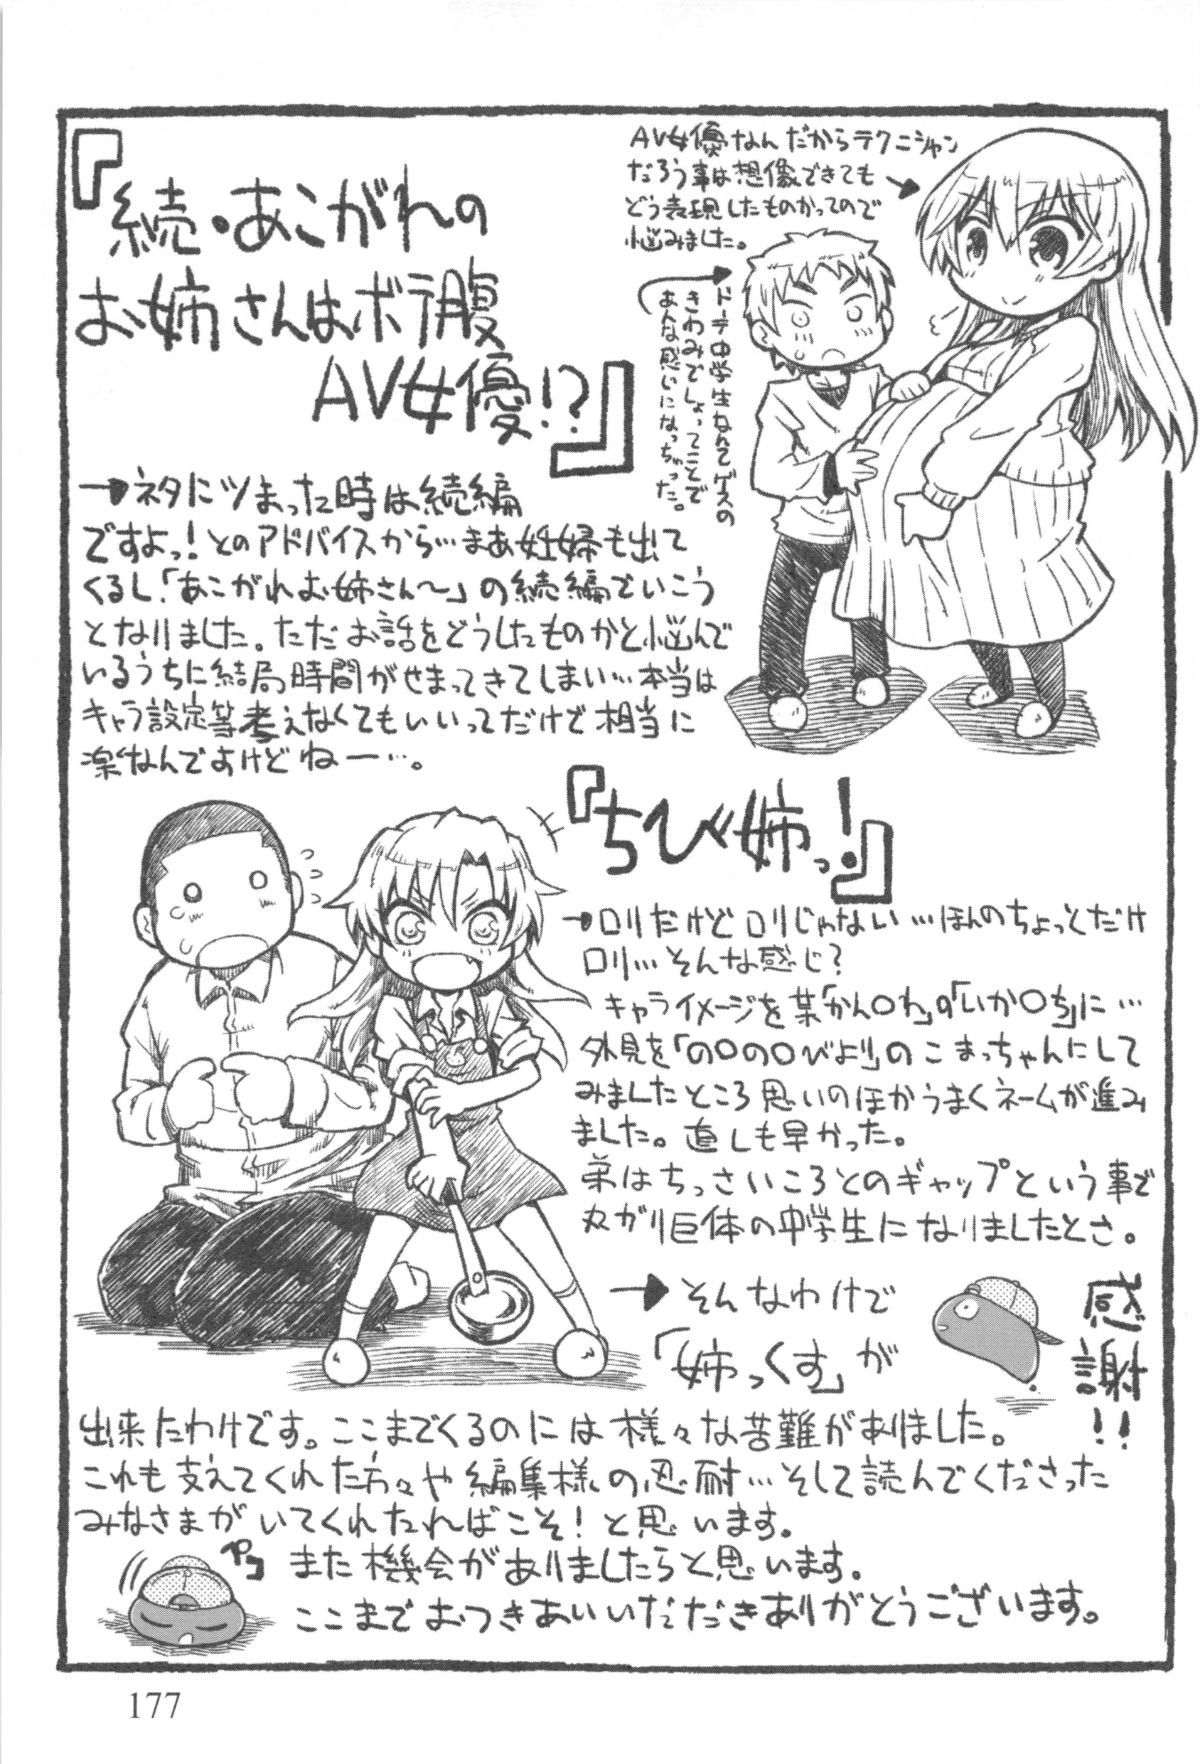 『続・あこがれの
お姉さんはボテ腹
AV女優!?』
AV女優なんだからテクニシャン
だろう事は想像できても
どう表現したものかってので
悩みました。
ドーテー中学生なんてゲスの
きわみでしょってことで
あんな感じになっちゃった。
→ネタにツまった時は続編
ですよっ!とのアドバイスから…まあ妊婦も出て
くるし「あこがれお姉さん〜」の続編でいこう
となりました。ただお話をどうしたものかと悩んで
いるうちに結局時間がせまってきてしまい…本当は
キャラ設定等考えなくてもいいってだけで相当に
楽なんですけどねー…。
『ちび姉っ!』
→ロリだけどロリじゃない…ほんのちょっとだけ
ロリ…そんな感じ?
キャライメージを某「かん〇れ」の「いか〇ち」に…
外見を「の〇の〇びより」のこまっちゃんにして
みましたところ思いのほかうまくネームが進み
ました。直しも早かった。
弟はちっさいころとのギャップという事で
丸ガリ巨体の中学生になりましたとさ。
→そんなわけで
「姉っくす」が
出来たわけです。ここまでくるのには様々な苦難がありました。
これも支えてくれた方々や編集様の忍耐…そして読んでくださった
みなさまがいてくれたればこそ!と思います。
また機会がありましたらと思います。
ここまでおつきあいいただきありがとうございます。
感謝!!
177